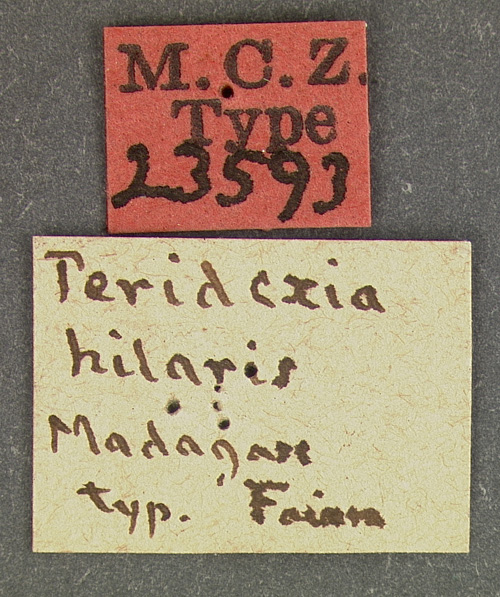 M. C. Z.
Type
23593
Peridexia
hilaris
Madagasc
typ.